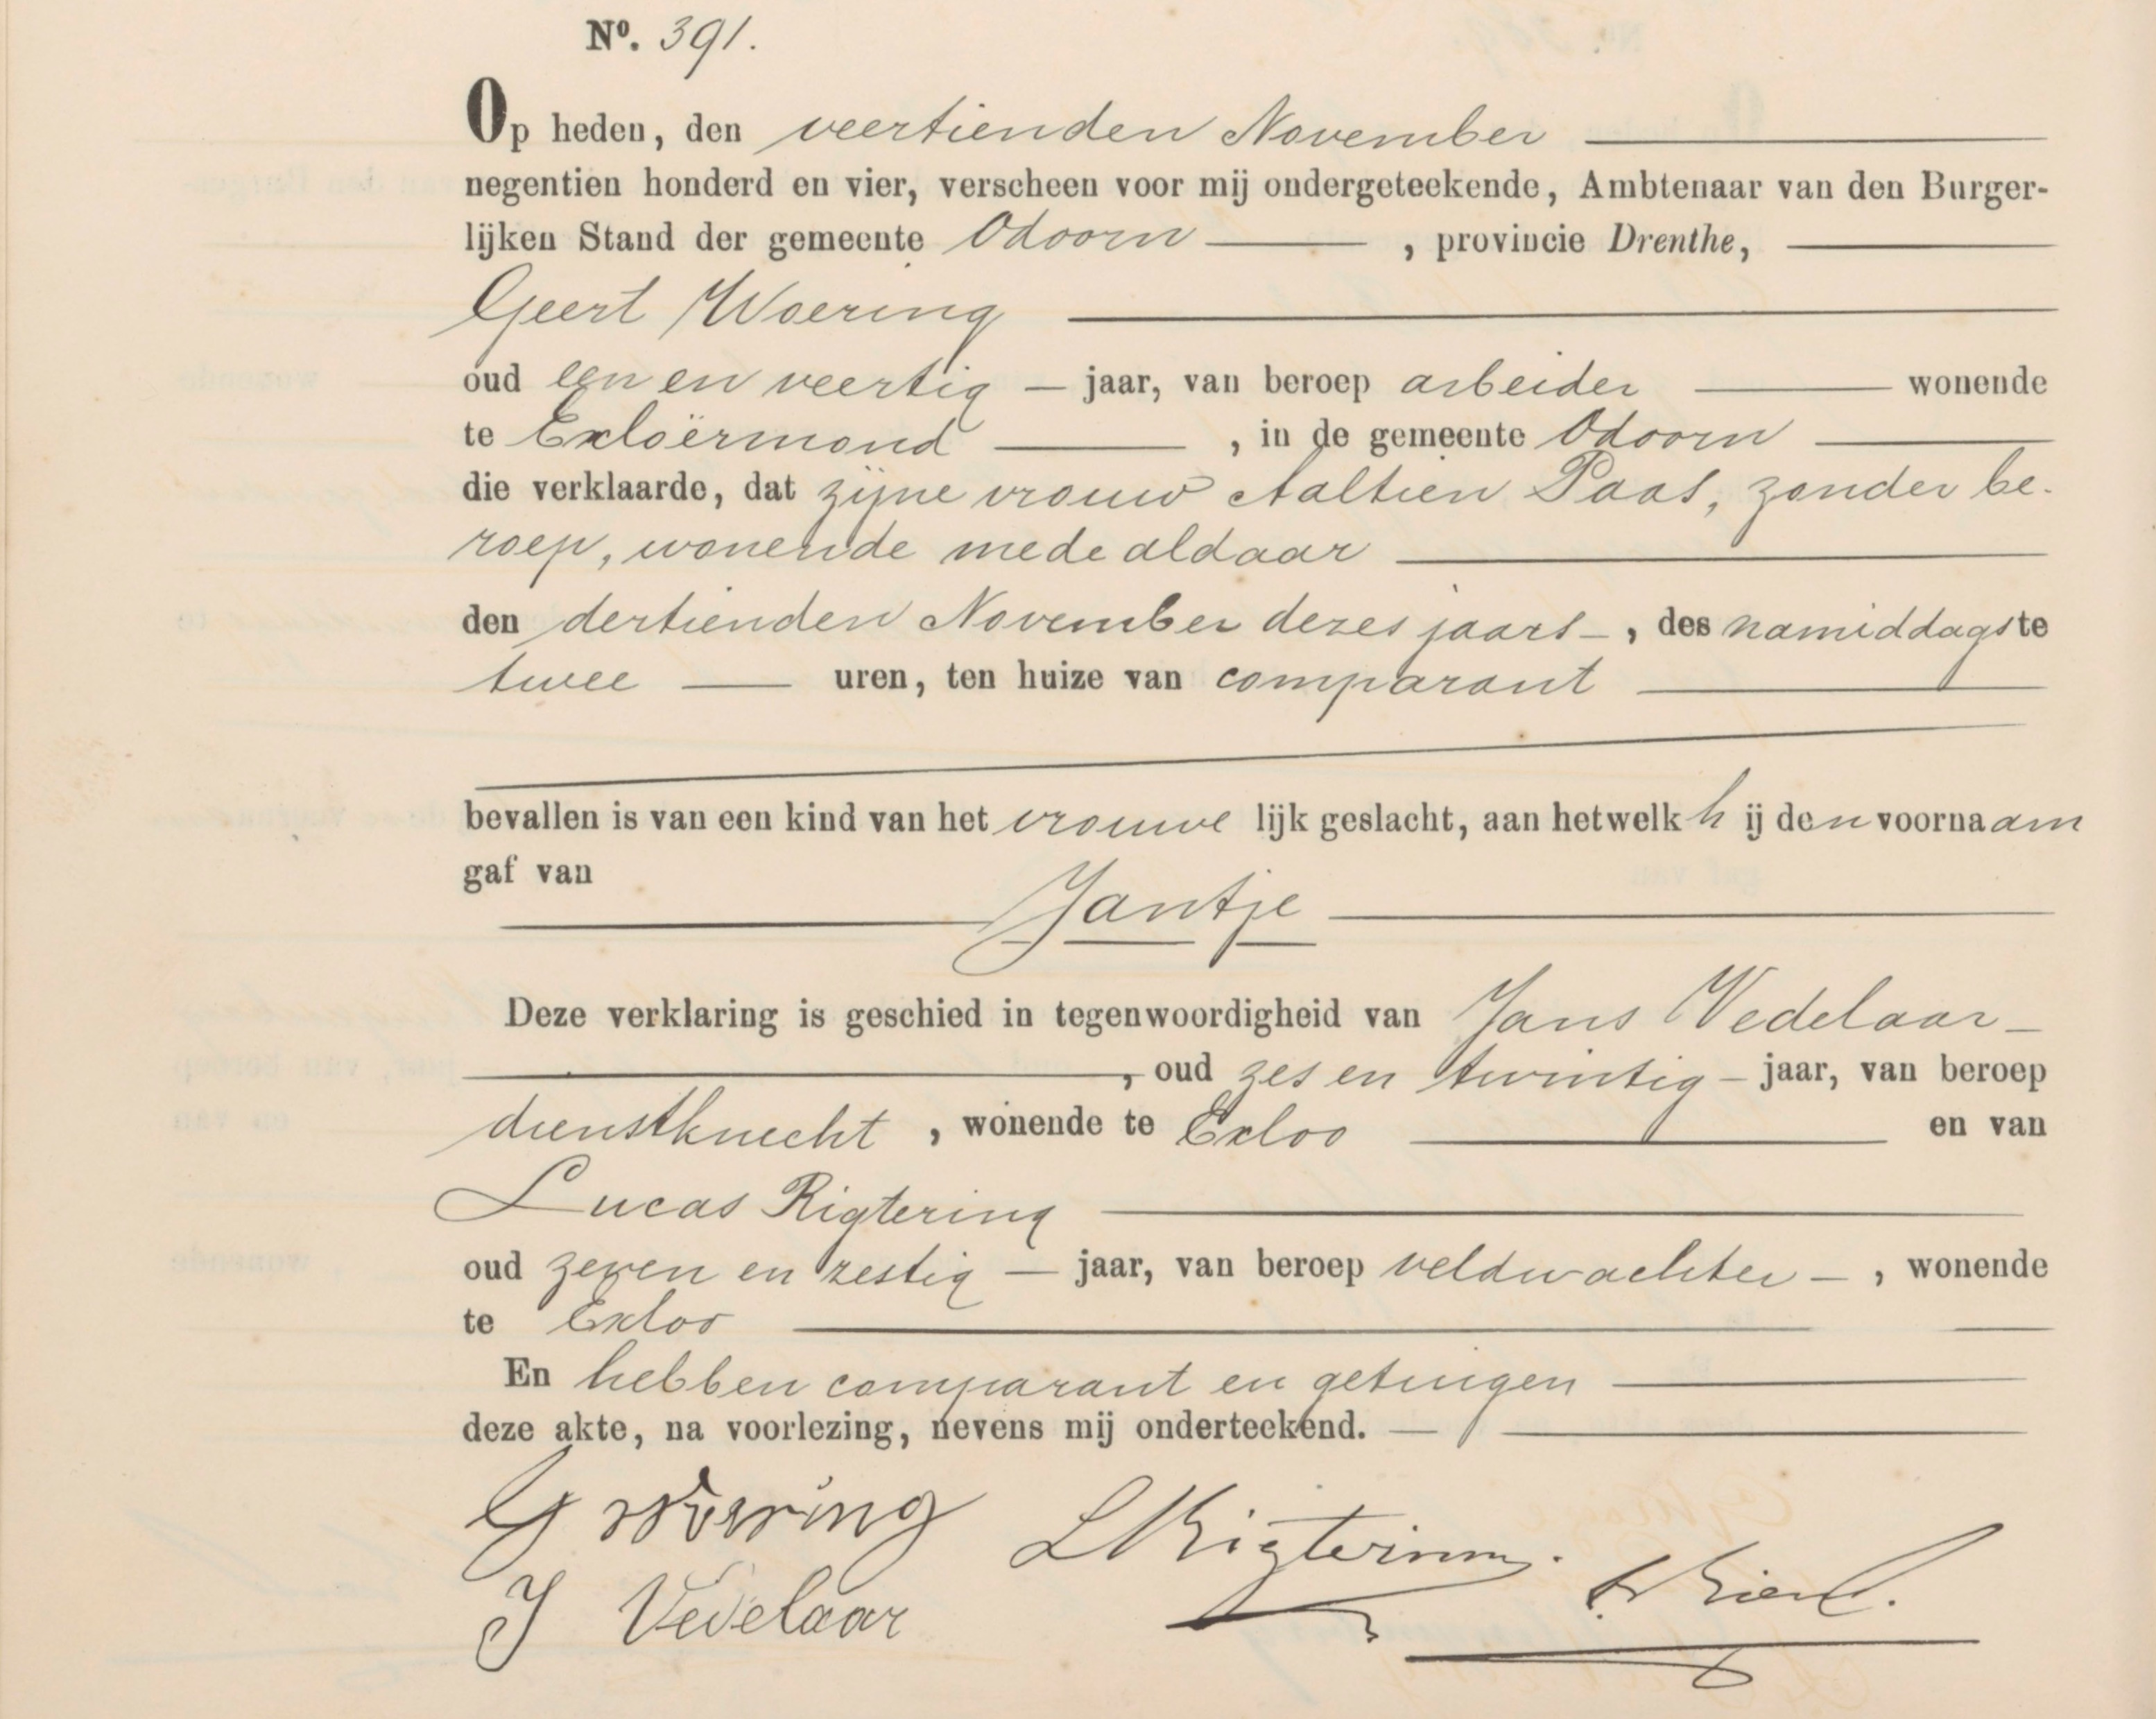 No. 391.
Op heden, den veertienden November
negentien honderd en vier, verscheen voor mij ondergeteekende, Ambtenaar van den Burger-
lijken Stand der gemeente Odoorn, provincie Drenthe,
Geert Woering
oud een en veertig jaar, van beroep arbeider wonende
te Exloërmond, in de gemeente Odoorn
die verklaarde, dat zijne vrouw Aaltien Paas, zonder be-
roep, wonende mede aldaar
den dertienden November dezes jaars, des namiddags te
twee uren, ten huize van comparant
bevallen is van een kind van het vrouwelijk geslacht, aan hetwelk hij den voornaam
gaf van
Jantje
Deze verklaring is geschied in tegenwoordigheid van Jans Vedelaar
, oud zes en twintig jaar, van beroep
dienstknecht, wonende te Exloo en van
Lucas Rigtering
oud zeven en zestig jaar, van beroep veldwachter, wonende
te Exloo
En hebben comparant en getuigen
deze akte, na voorlezing, nevens mij onderteekend.
G Woering LRigtering.
J Vedelaar